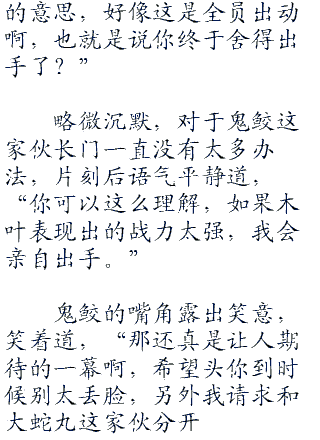 的意思，好像这是全员出动
啊，也就是说你终于舍得出
手了？”
略微沉默，对于鬼鲛这
家伙长门一直没有太多办
法，片刻后语气平静道，
“你可以这么理解，如果木
叶表现出的战力太强，我会
亲自出手。”
鬼鲛的嘴角露出笑意，
笑着道，“那还真是让人期
待的一幕啊，希望头你到时
候别太丢脸，另外我请求和
大蛇丸这家伙分开